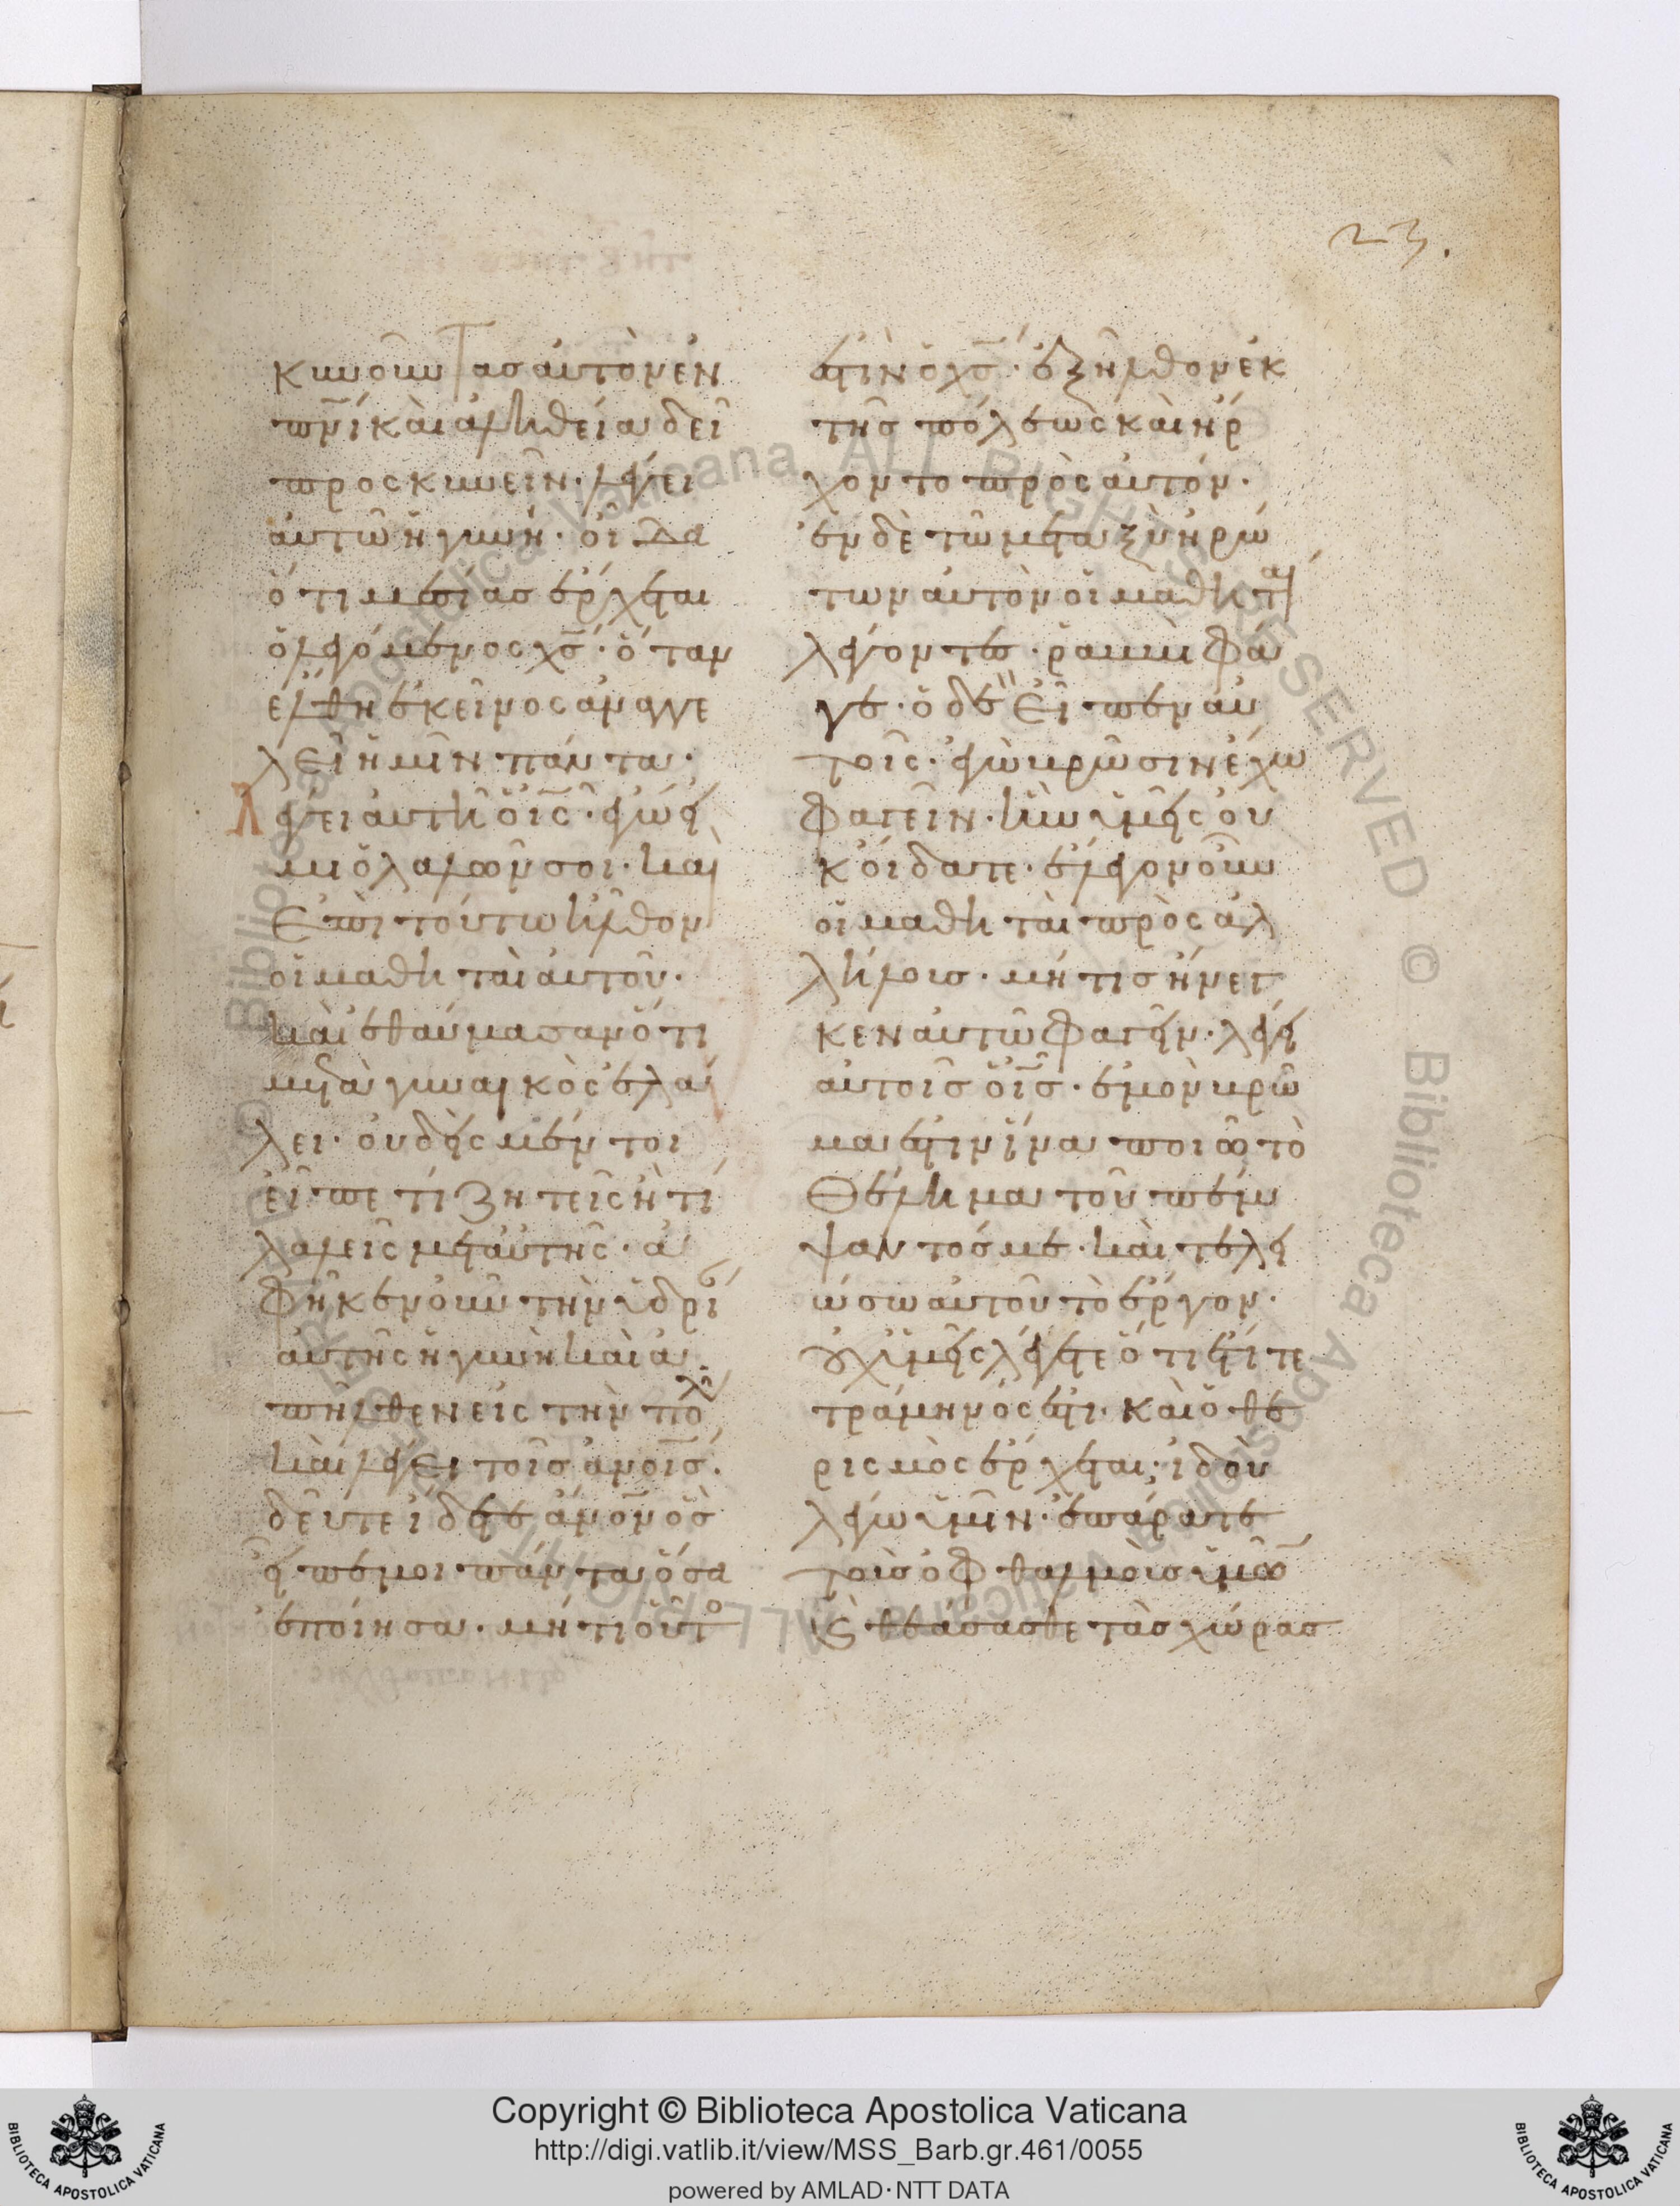 23.
κυνοῦντας αὐτὸν ἐν
πν̅ι καὶ ἀληθεία δεῖ
προσκυνεῖν. λέγει
αὐτῶ ἡ γυνή. οἶδα
ὅτι μεσίας ἔρχεται
ὁ λεγόμενος χσ̅. ὅταν
ἔλθη ἐκεῖνος ἀναγγε
λεῖ ἡμῖν πάντα.
Λέγει αὐτῆ ὁ ισ̅. ἐγώ εἰ
μι ὁ λαλῶν σοι. καὶ
ἐπὶ τούτω ἦλθον
οἱ μαθηταὶ αὐτοῦ.
καὶ ἐθαύμασαν ὅτι
μετὰ γυναικὸς ἐλά
λει. οὐδεὶς μέντοι
εἶπε τί ζητεῖς ἢ τί
λαλεῖς μετ αὐτῆς. ἀ
φῆκεν οὖν τὴν ὑδρί
αὐτῆς ἡ γυνὴ καὶ ἀ
πῆλθεν εἰς τὴν πόλ
καὶ λέγει τοῖς ἀνοισ̅.
δεῦτε ἴδετε ἄνον̅ ὃς
εἶπέ μοι πάντα ὅσα
ἐποίησα. μήτι οὗτο
ἐστὶν ὁ χσ̅. ἐξῆλθον ἐκ
τῆς πόλεως καὶ ἤρ
χοντο πρὸς αὐτόν.
ἐν δὲ τῶ μεταξὺ ἠρώ
των αὐτὸν οἱ μαθηταὶ
λέγοντες. ῥαββὶ φά
γε. ὁ δὲ εἶπεν αὐ
τοῖς. ἐγὼ βρῶσιν ἔχω
φαγεῖν. ἣν ὑμεῖς οὐ
κ οἴδατε. ἔλεγον οὖν
οἱ μαθηταὶ πρὸς ἀλ
λήλοις. μή τις ἤνεγ
κεν αὐτῶ φαγεῖν. λέγει
αὐτοῖς ὁ ισ̅. ἐμὸν βρῶ
μα ἐστιν ἵνα ποιῶ τὸ
θέλημα τοῦ πέμ
ψαντός με. καὶ τελει
ώσω αὐτοῦ τὸ ἔργον.
οὐχ ὑμεῖς λέγετε ὅτι ἔτι τε
τράμηνός ἐστι. καὶ ὁ θε
ρισμὸς ἔρχεται. ἰδοὺ
λέγω ὑμῖν. ἐπάρατε
τοὺς ὀφθαλμοὺς ὑμῶν
κ(αὶ) θεάσασθε τὰς χώρας
Copyright © Biblioteca Apostolica Vaticana
http://digi.vatlib.it/view/MSS_Barb.gr.461/0055
powered by AMLAD·NTT DATA